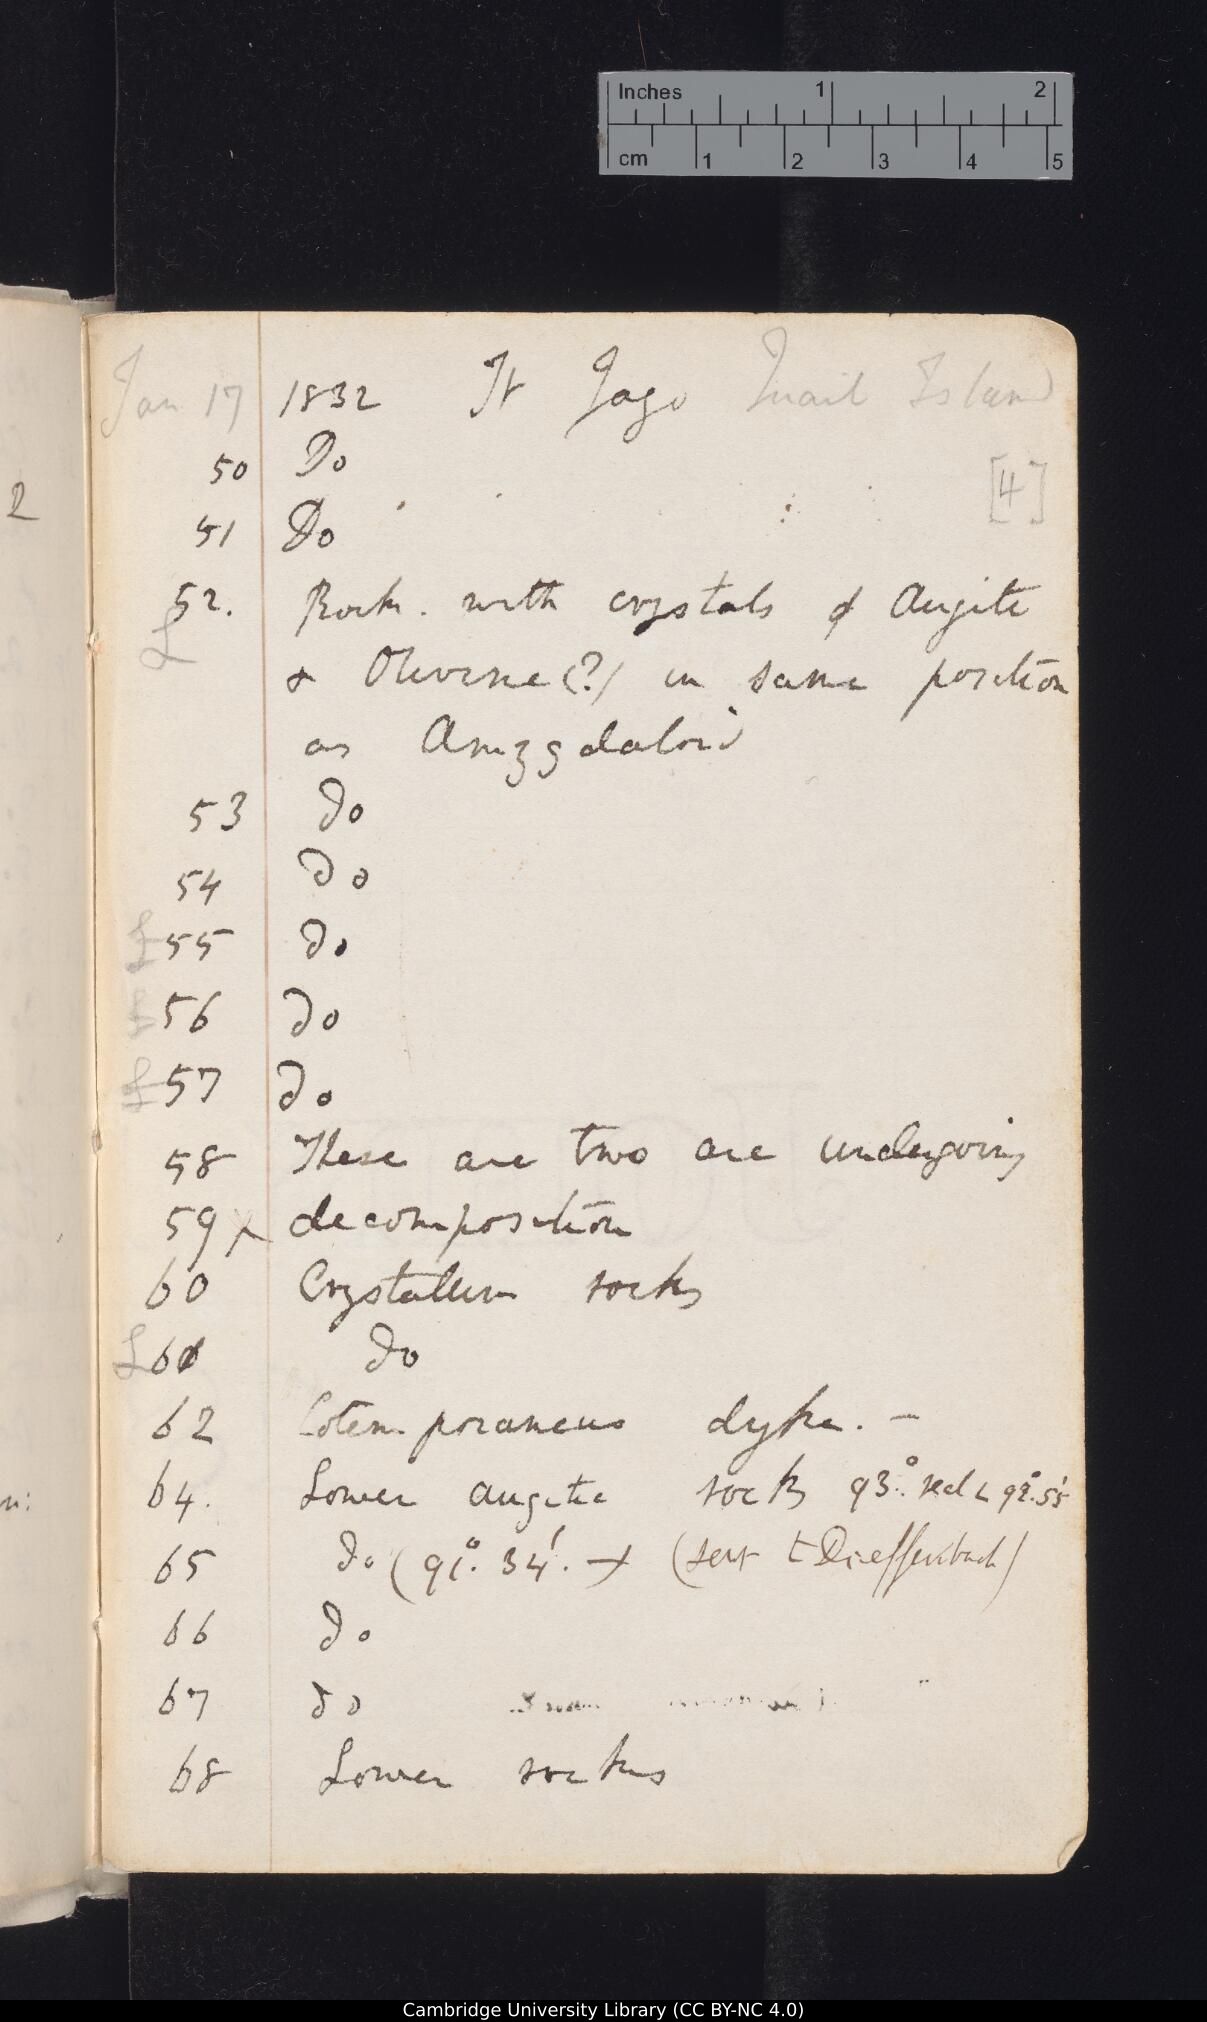 Inches 1 2
cm 1 2 3 4 5
Jan 17 1832 St Jago Quail Island
50 Do
[4]
2
51 Do
52. Rock. with crystals of Augite
L
& Olivine (?) in same position
as Amygdaloid
53 Do
54 Do
L 55 Do
L 56 Do
L 57 Do
58 These are two are undergoing
59 x decomposition
60 Crystalline rocks
L 61 Do
62 Cotemporaneus dyke. —
64. Lower augitic rocks 93°.
n:
65 Do (91°. 34'. (sent to Dieffenbach)
66 Do
67 Do
68 Lower rocks
Cambridge University Library (CC BY-NC 4.0)